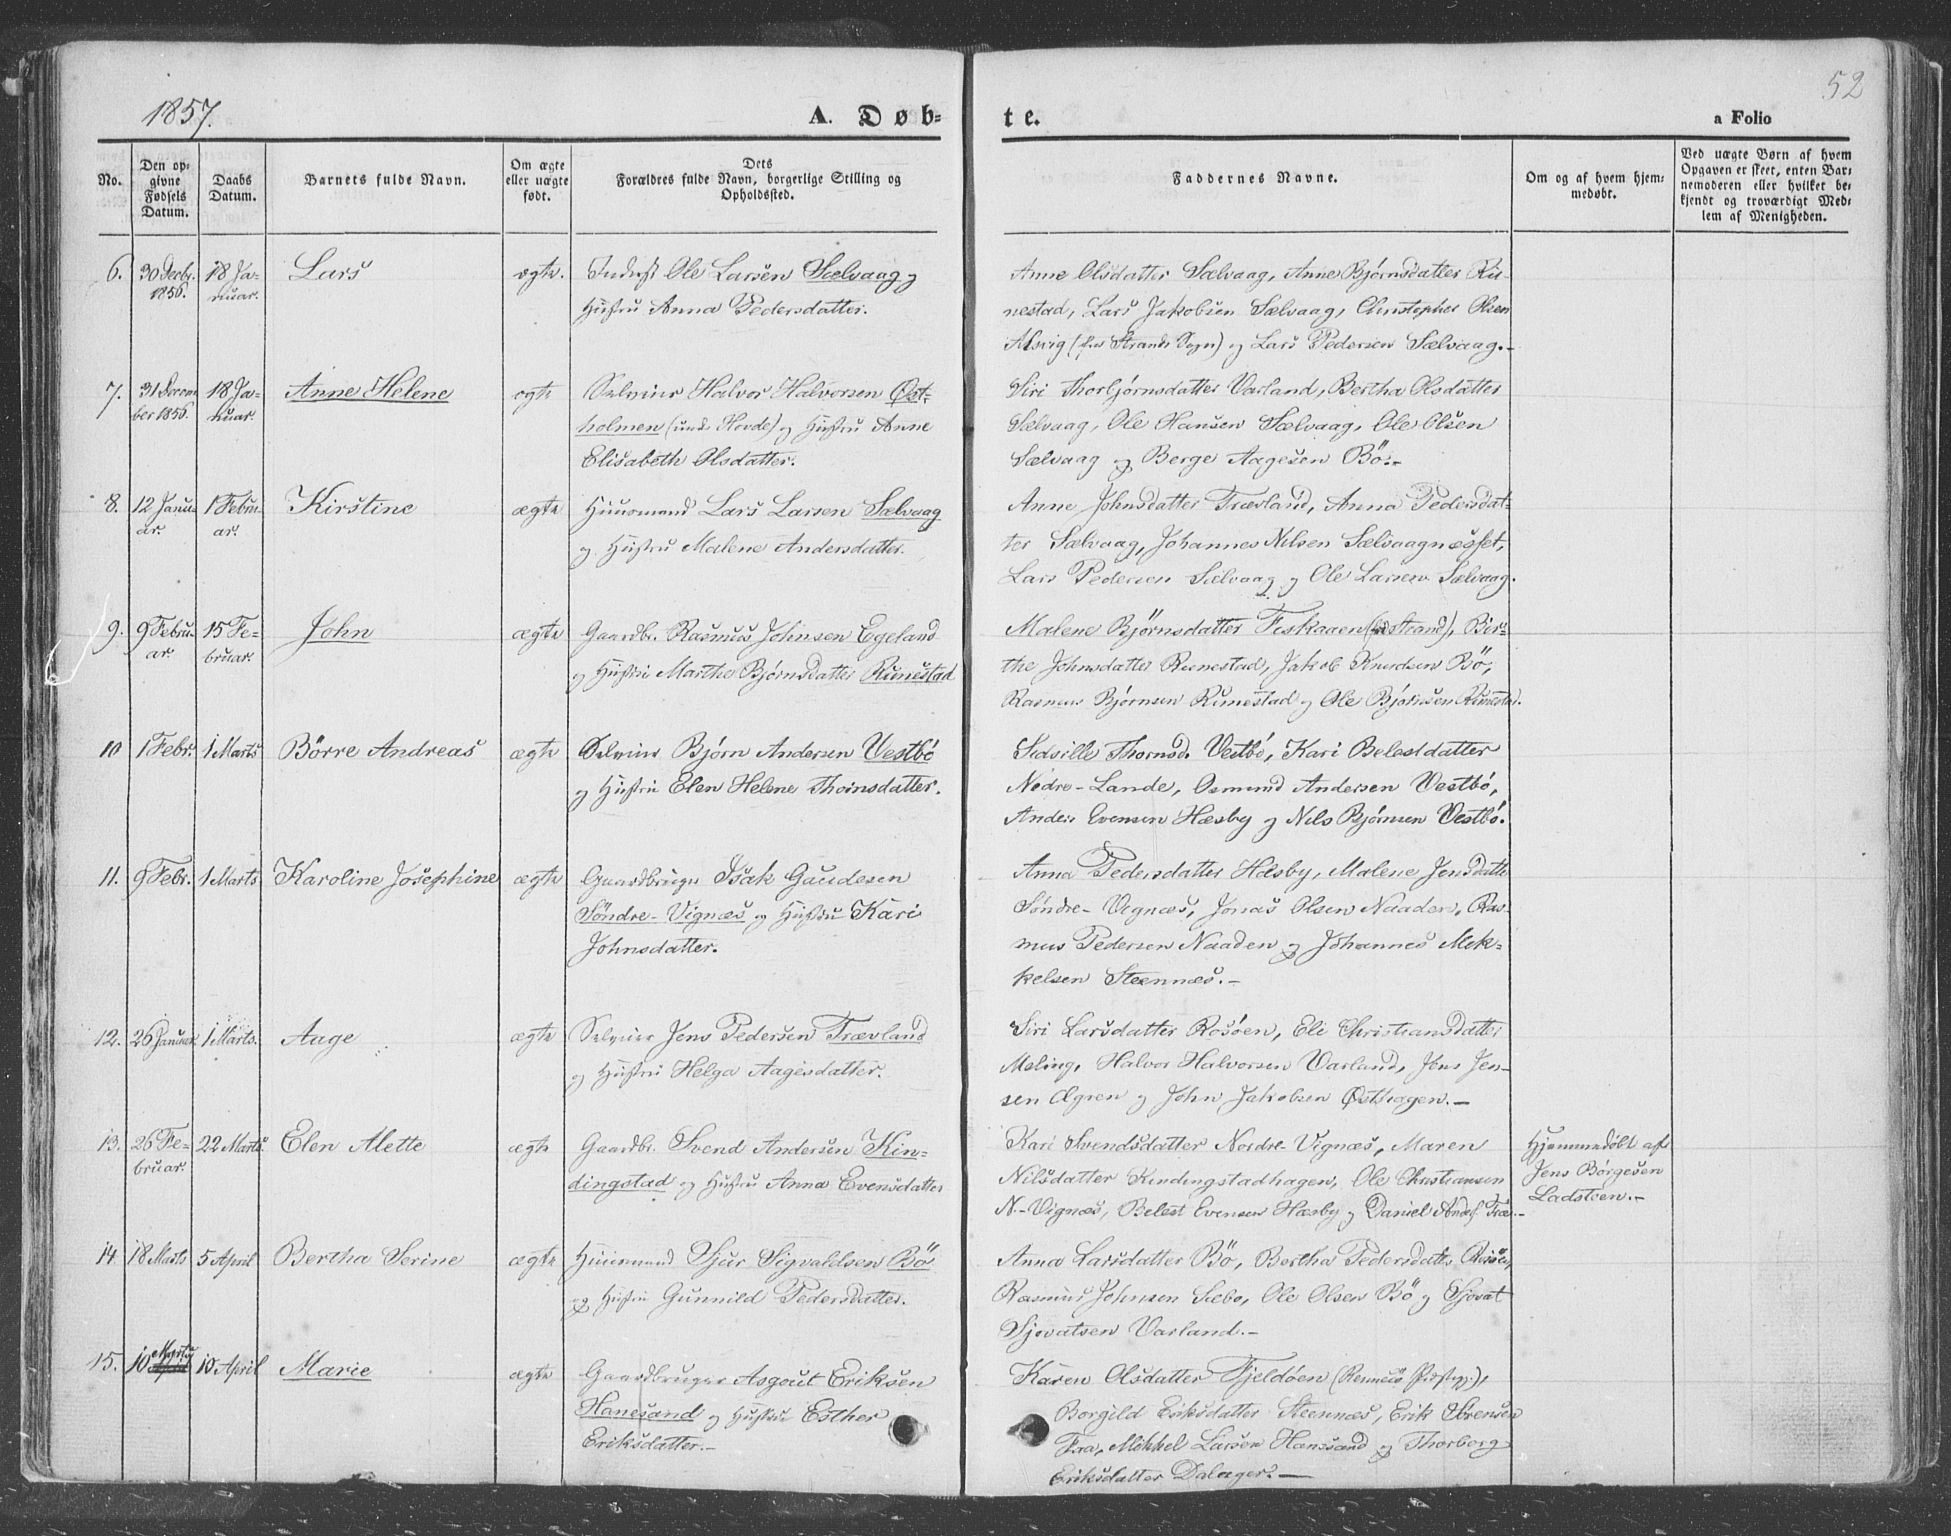 1857.
A. Døb-
te.
a Folio
52
No.
Den op-
givne
Fødsels
Datum.
Daabs
Datum.
Barnets fulde Navn.
Om ægte
eller uægte
født.
Dets
Forældres fulde Navn, borgerlige Stilling og
Opholdssted.
Faddernes Navne.
Om og af hvem hjem-
medøbt.
Ved uægte Børn af hvem
Opgaven er skeet, enten Bar-
nemoderen eller hvilket be-
kjendt og troværdigt Med-
lem af Menigheden.
6.
30 Decbr.
1856.
18 Ja-
nuar.
Lars
ægte.
Inderst Ole Larsen Sælvaag og
Hustru Anna Pedersdatter.
Anne Olsdatter Sælvaag, Anne Bjørnsdatter Ru-
nestad, Lars Jakobsen Sælvaag, Christopher Olsen
Alsvig (fra Strands Sogn) og Lars Pedersen Sælvaag.-
7.
31 Decem
ber 1856.
18 Ja-
nuar.
Anne Helene
ægte
Selveier Halvor Halvorsen Øst-
holmen (under Hovde) og Hustru Anne
Elisabeth Olsdatter.
Siri Thorbjørnsdatter Varland, Bertha Olsdatter
Sælvaag, Ole Hansen Sælvaag, Ole Olsen
Sælvaag og Berge Aagesen Bö.-
8.
12 Janu-
ar.
1 Febru-
ar.
Kirstine
ægte
Huusmand Lars Larsen Sælvaag
og Hustru Malene Andersdatter.
Anne Johnsdatter Trævland, Anna Pedersdat-
ter Sælvaag, Johannes Nilsen Sælvaagnesset,
Lars Pedersen Sælvaag og Ole Larsen Sælvaag.
9.
9 Febru-
ar.
15 Fe-
bruar.
John
ægte
Gaardbr. Rasmus Johnsen Egeland
og Hustru Marthe Bjørnsdatter Runestad
Malene Bjørnsdatter Fiskaaen (Strand), Ber-
the Johnsdatter Runestad, Jakob Knudsen Bö,
Rasmus Bjørnsen Runestad og Ole Bjørnsen Runestad.
10
1 Febr.
1 Marts
Börre Andreas
ægte
Selveier Bjørn Andersen Vestbö
og Hustru Elen Helene Thornsdatter.
Sidsille Thornsd. Vestbö, Kari Belestdatter
Nedre-Lande, Osmund Andersen Vestbö,
Anders Evensen Hæsby og Nils Bjørnsen Vestbö.
11.
9 Febr.
1 Marts
Karoline Josephine
ægte
Gaardbruger Isak Gaudesen
Söndre-Vignæs og Hustru Kari
Johnsdatter.
Anna Pedersdatter Hæsby, Malene Jensdatter
Söndre-Vignæs, Jonas Olsen Naaden, Ras-
mus Pedersen Naaden og Johannes Mik-
kelsen Steennæs.-
12.
26 Januar
1 Marts.
Aage
ægte
Selveier Jens Pedersen Trævland
og Hustru Helga Aagesdatter.
Siri Larsdatter Rosöen, Eli Christiansdatter
Meling, Halvor Halvorsen Varland, Jens Jen-
sen Ægren og John Jakobsen Østhagen.-
13.
26 Fe-
bruar.
22 Marts.
Elen Alette
ægte
Gaardbr. Svend Andersen Kin-
dingstad og Hustru Anna Evensdatter
Kari Svendsdatter Nordre-Vignæs, Maren
Nilsdatter Kindingstadhagen, Ole Christiansen
N.-Vignæs, Belest Evensen Hæsby og Daniel
Hjemmedøbt af
Jens Börgesen
Ladsteen.-
14
18 Marts
5 April
Bertha Serine
ægte
Huusmand Sjur Sigvaldsen Bö
og Hustru Gunnild Pedersdatter.
Anna Larsdatter Bö, Bertha Pedersdatter
Rasmus Johnsen Sæbo, Ole Olsen Bö og Sjovat
Sjovatsen Varland.-
15.
10 Marts
April
10 April
Marie
ægte
Gaardbruger Asgout Eriksen
Hanesand og Hustru Esther
Eriksdatter.-
Karen Olsdatter Fjeldöen (Rennesö Præstegj.),
Borgild Eriksdatter Steennæs, Erik Sörensen
Faa, Mikkel Larsen Hanesand og Thorborg
Eriksdatter Dalager.-